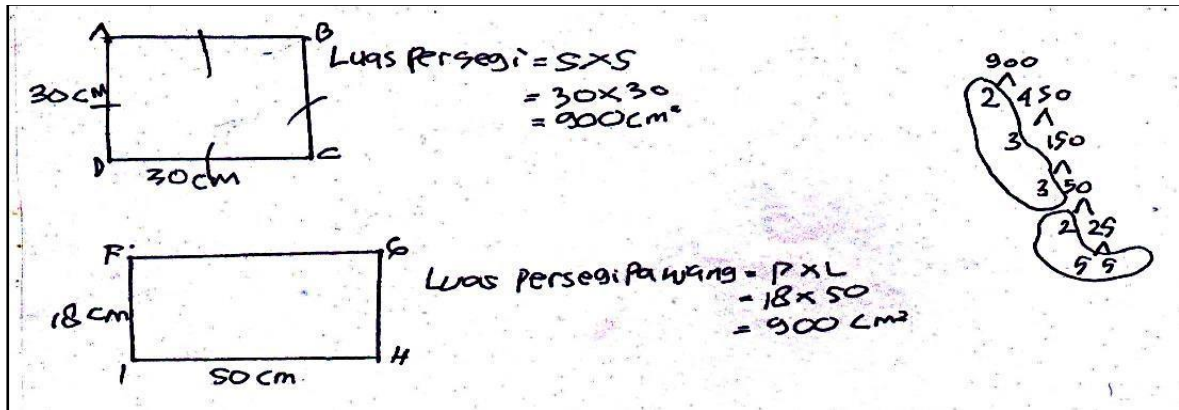 A B
30 cm
D C
30 cm
Luas Persegi = S X S
= 30 X 30
= 900 cm²
900
2 450
3 150
3 50
2 25
5 5
F G
18 cm
I H
50 cm
Luas persegi Panjang = P X L
= 18 X 50
= 900 cm²